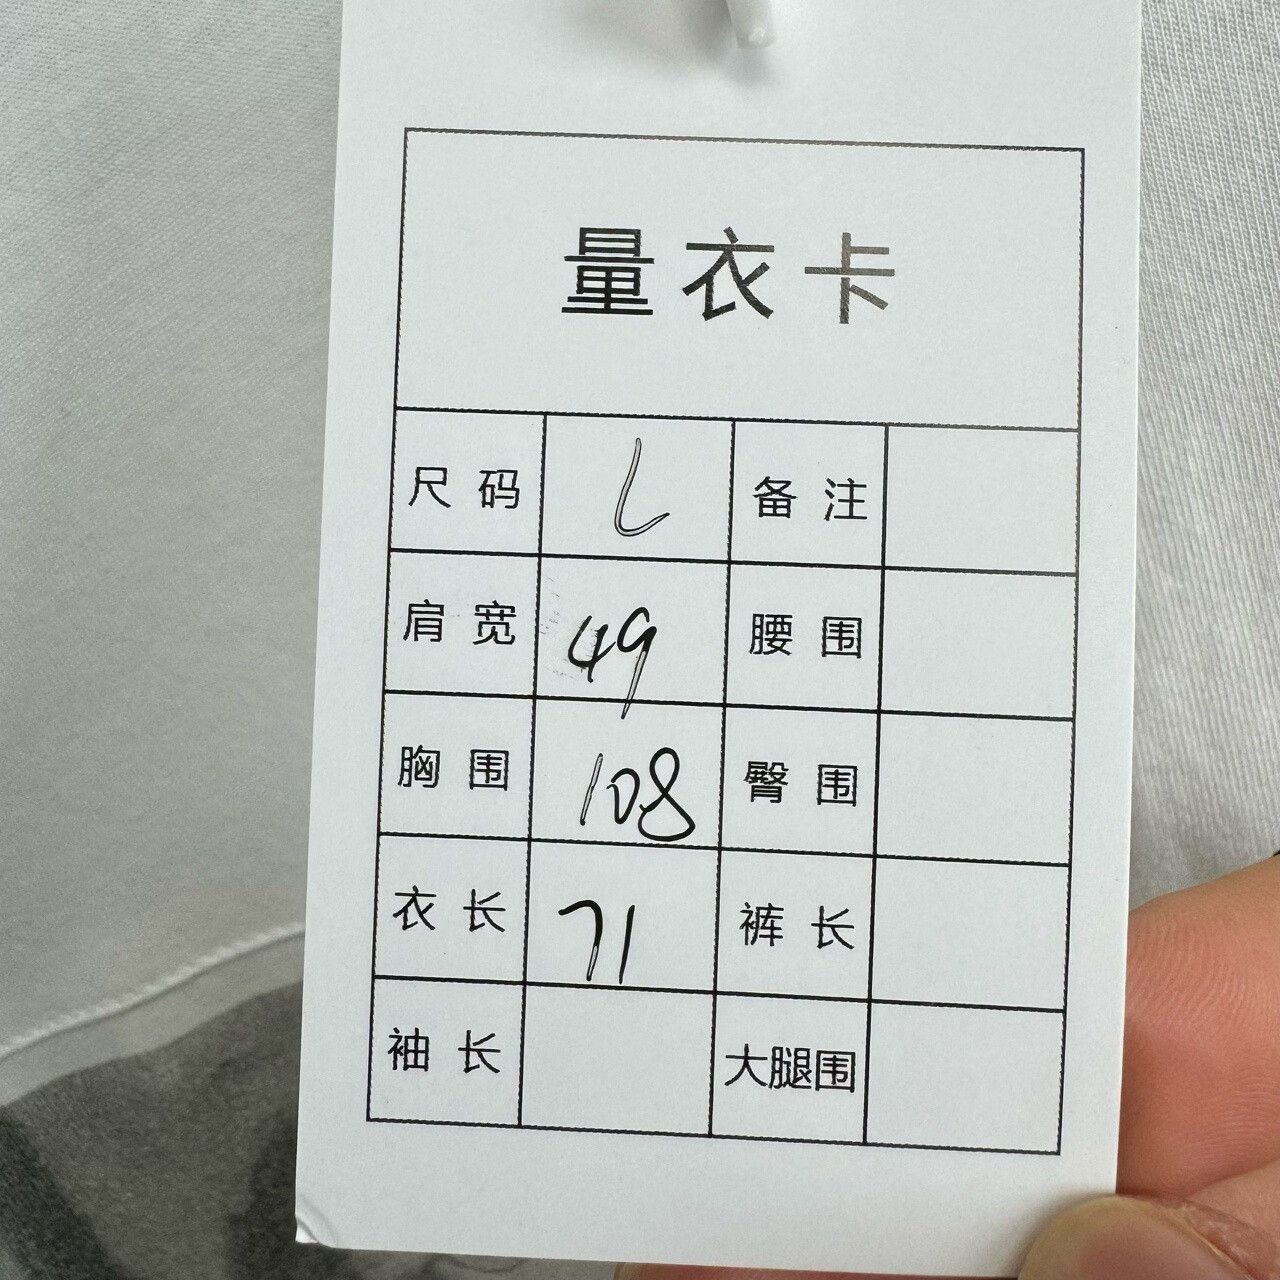 量衣卡
尺码 L 备注
肩宽 49 腰围
胸围 108 臀围
衣长 71 裤长
袖长 大腿围